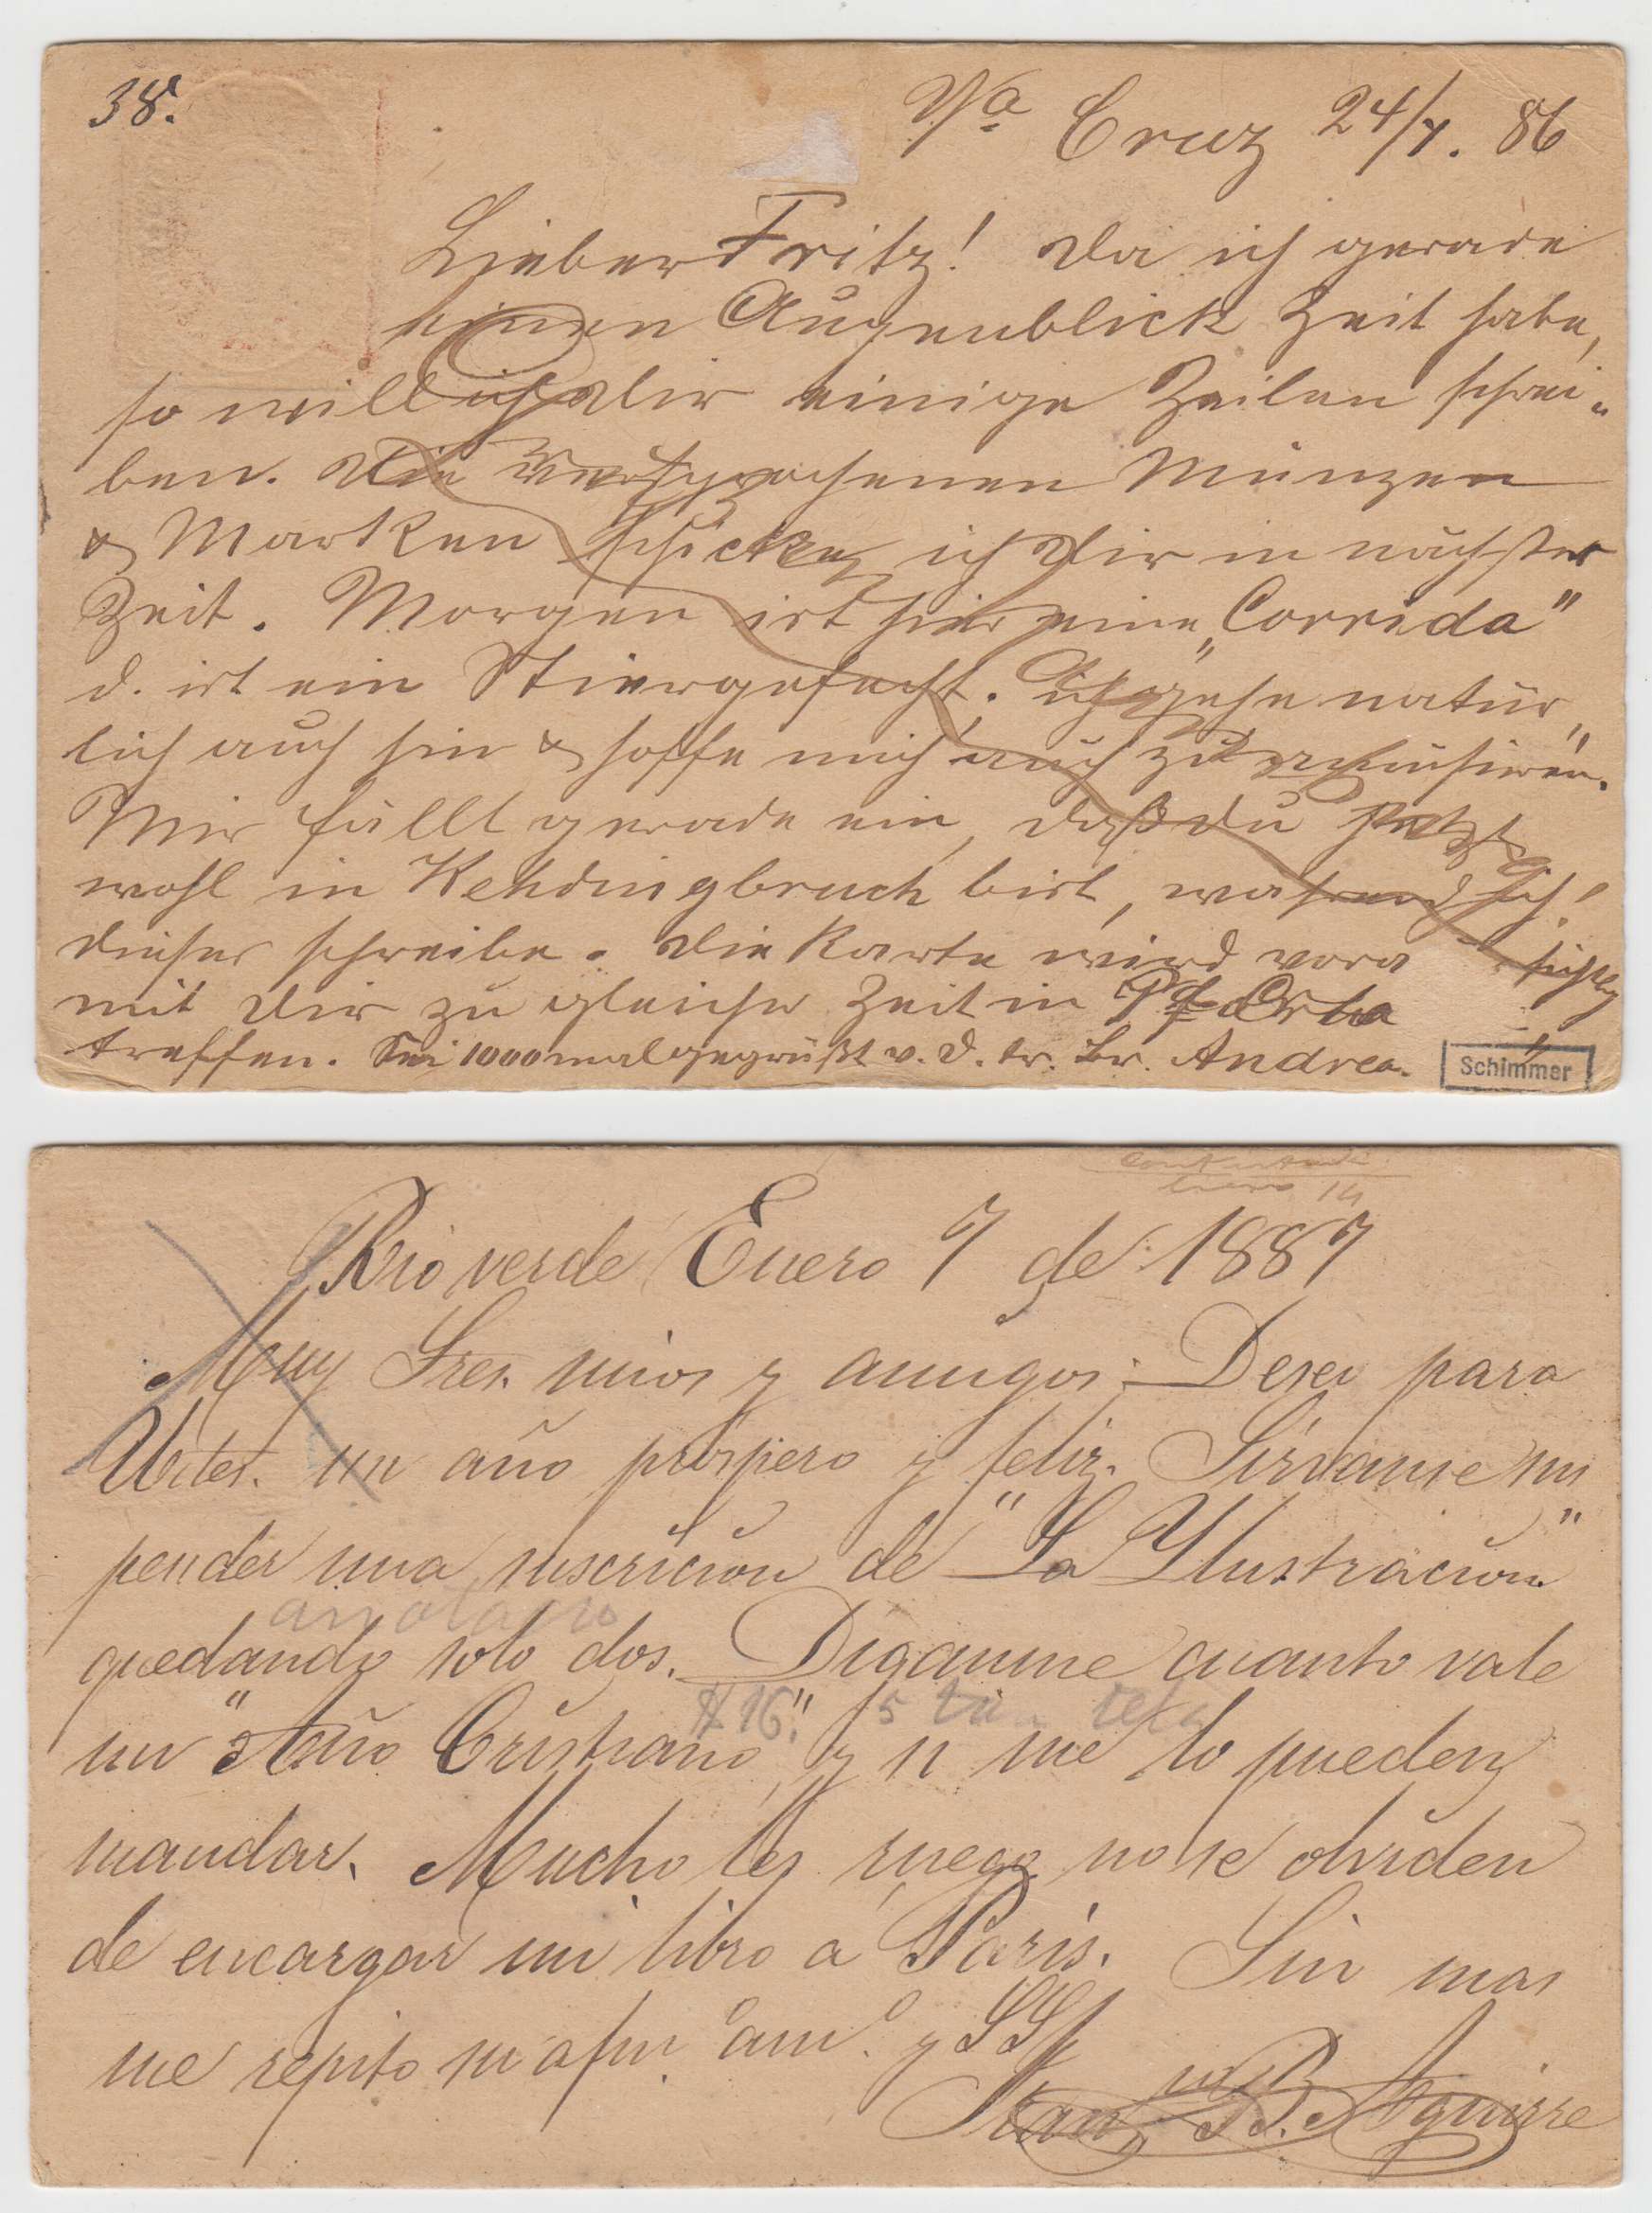 38.
Va Cruz 24/7. 86
Lieber Fritz! Da ich gerade
einen Augenblick Zeit habe,
so will ich Dir einige Zeilen schrei-
ben. Die versprochenen Münzen
& Marken schicke ich Dir in nächster
Zeit. Morgen ist hier eine „Corrida"
d. ist ein Stiergefecht. Ich gehe natür-
lich auch hin & hoffe mich auch zu amüsiren.
Mir fällt gerade ein, daß du jetzt
wohl in Kehdingbruch bist, während ich
dieses schreibe. Die Karte wird vora
mit Dir zu gleicher Zeit in
treffen. Sei 1000mal gegrüßt v. d. tr. Br. Andrea.
Schimmer
Rio verde Enero 7 de 1887
Muy Sres. mios y amigos: Deseo para
Udes. un año próspero y feliz. Sirvanse sus
pender una suscricion de "La Ylustracion"
quedando solo dos. Diganme cuanto vale
$16. 5
un "Año Cristiano", y si me lo pueden
mandar. Mucho les ruego no se olviden
de encargar mi libro a Paris. Sin mas
me repito su afmo. amo. y SS
B. Aguirre